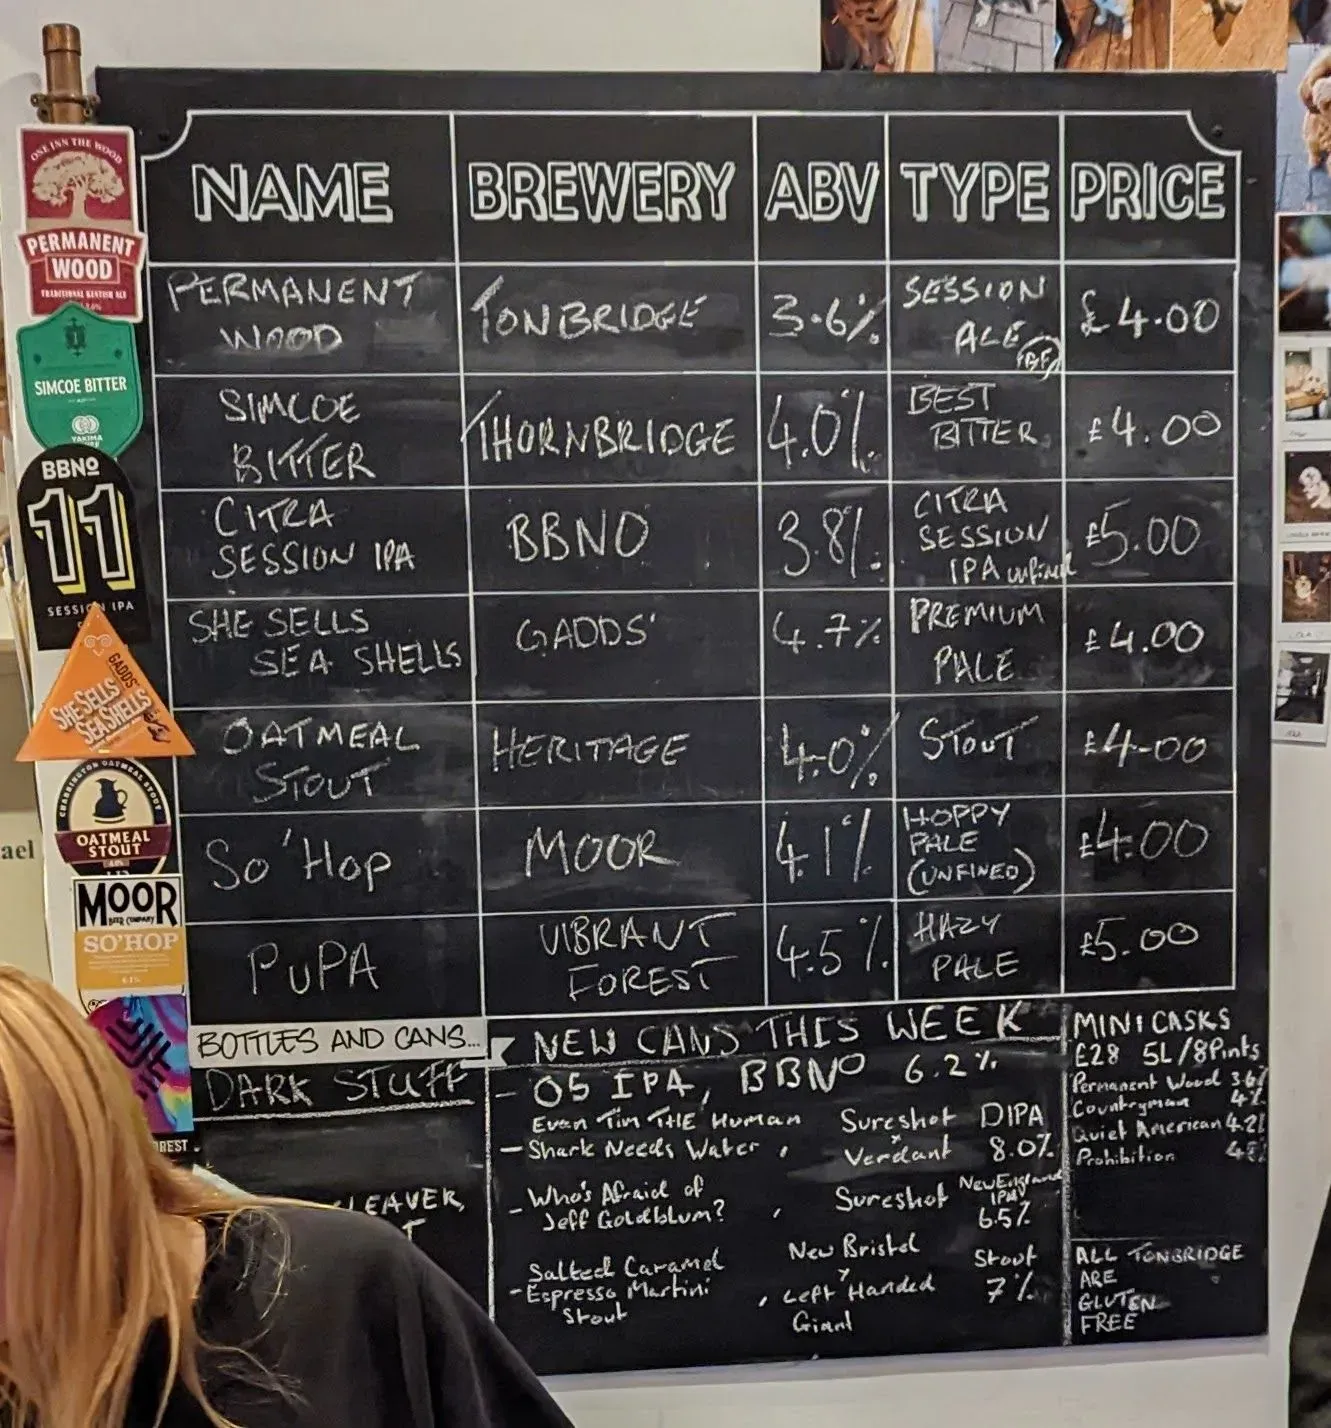 NAME BREWERY ABV TYPE PRICE
PERMANENT WOOD TONBRIDGE 3.6% SESSION ALE GF £4.00
SIMCOE BITTER THORNBRIDGE 4.0% BEST BITTER £4.00
CITRA SESSION IPA BBNO 3.8% CITRA SESSION IPA unfined £5.00
SHE SELLS SEA SHELLS GADDS' 4.7% PREMIUM PALE £4.00
OATMEAL STOUT HERITAGE 4.0% STOUT £4.00
So'Hop MOOR 4.1% HOPPY PALE (UNFINED) £4.00
PUPA VIBRANT FOREST 4.5% HAZY PALE £5.00
BOTTLES AND CANS...
DARK STUFF
LEAVER,
NEW CANS THIS WEEK
- 05 IPA, BBNO 6.2%
Even Tim The Human
- Shark Needs Water, Sureshot x Verdant DIPA 8.0%
- Who's Afraid of
Jeff Goldblum?, Sureshot New England IPA 6.5%
Salted Caramel
- Espresso Martini
Stout, New Bristol x Left Handed Giant Stout 7%
MINI CASKS
£28 5L/8Pints
Permanent Wood 3.6%
Countryman 4%
Quiet American 4.2%
Prohibition
ALL TONBRIDGE
ARE
GLUTEN
FREE
ONE INN THE WOOD
PERMANENT
WOOD
TRADITIONAL KENTISH ALE
SIMCOE BITTER
YAKIMA
BBNº
11
SESSION IPA
GADDS'
SHE SELLS
SEA SHELLS
OATMEAL
STOUT
MOOR
BEER COMPANY
SO'HOP
4.1%
ael